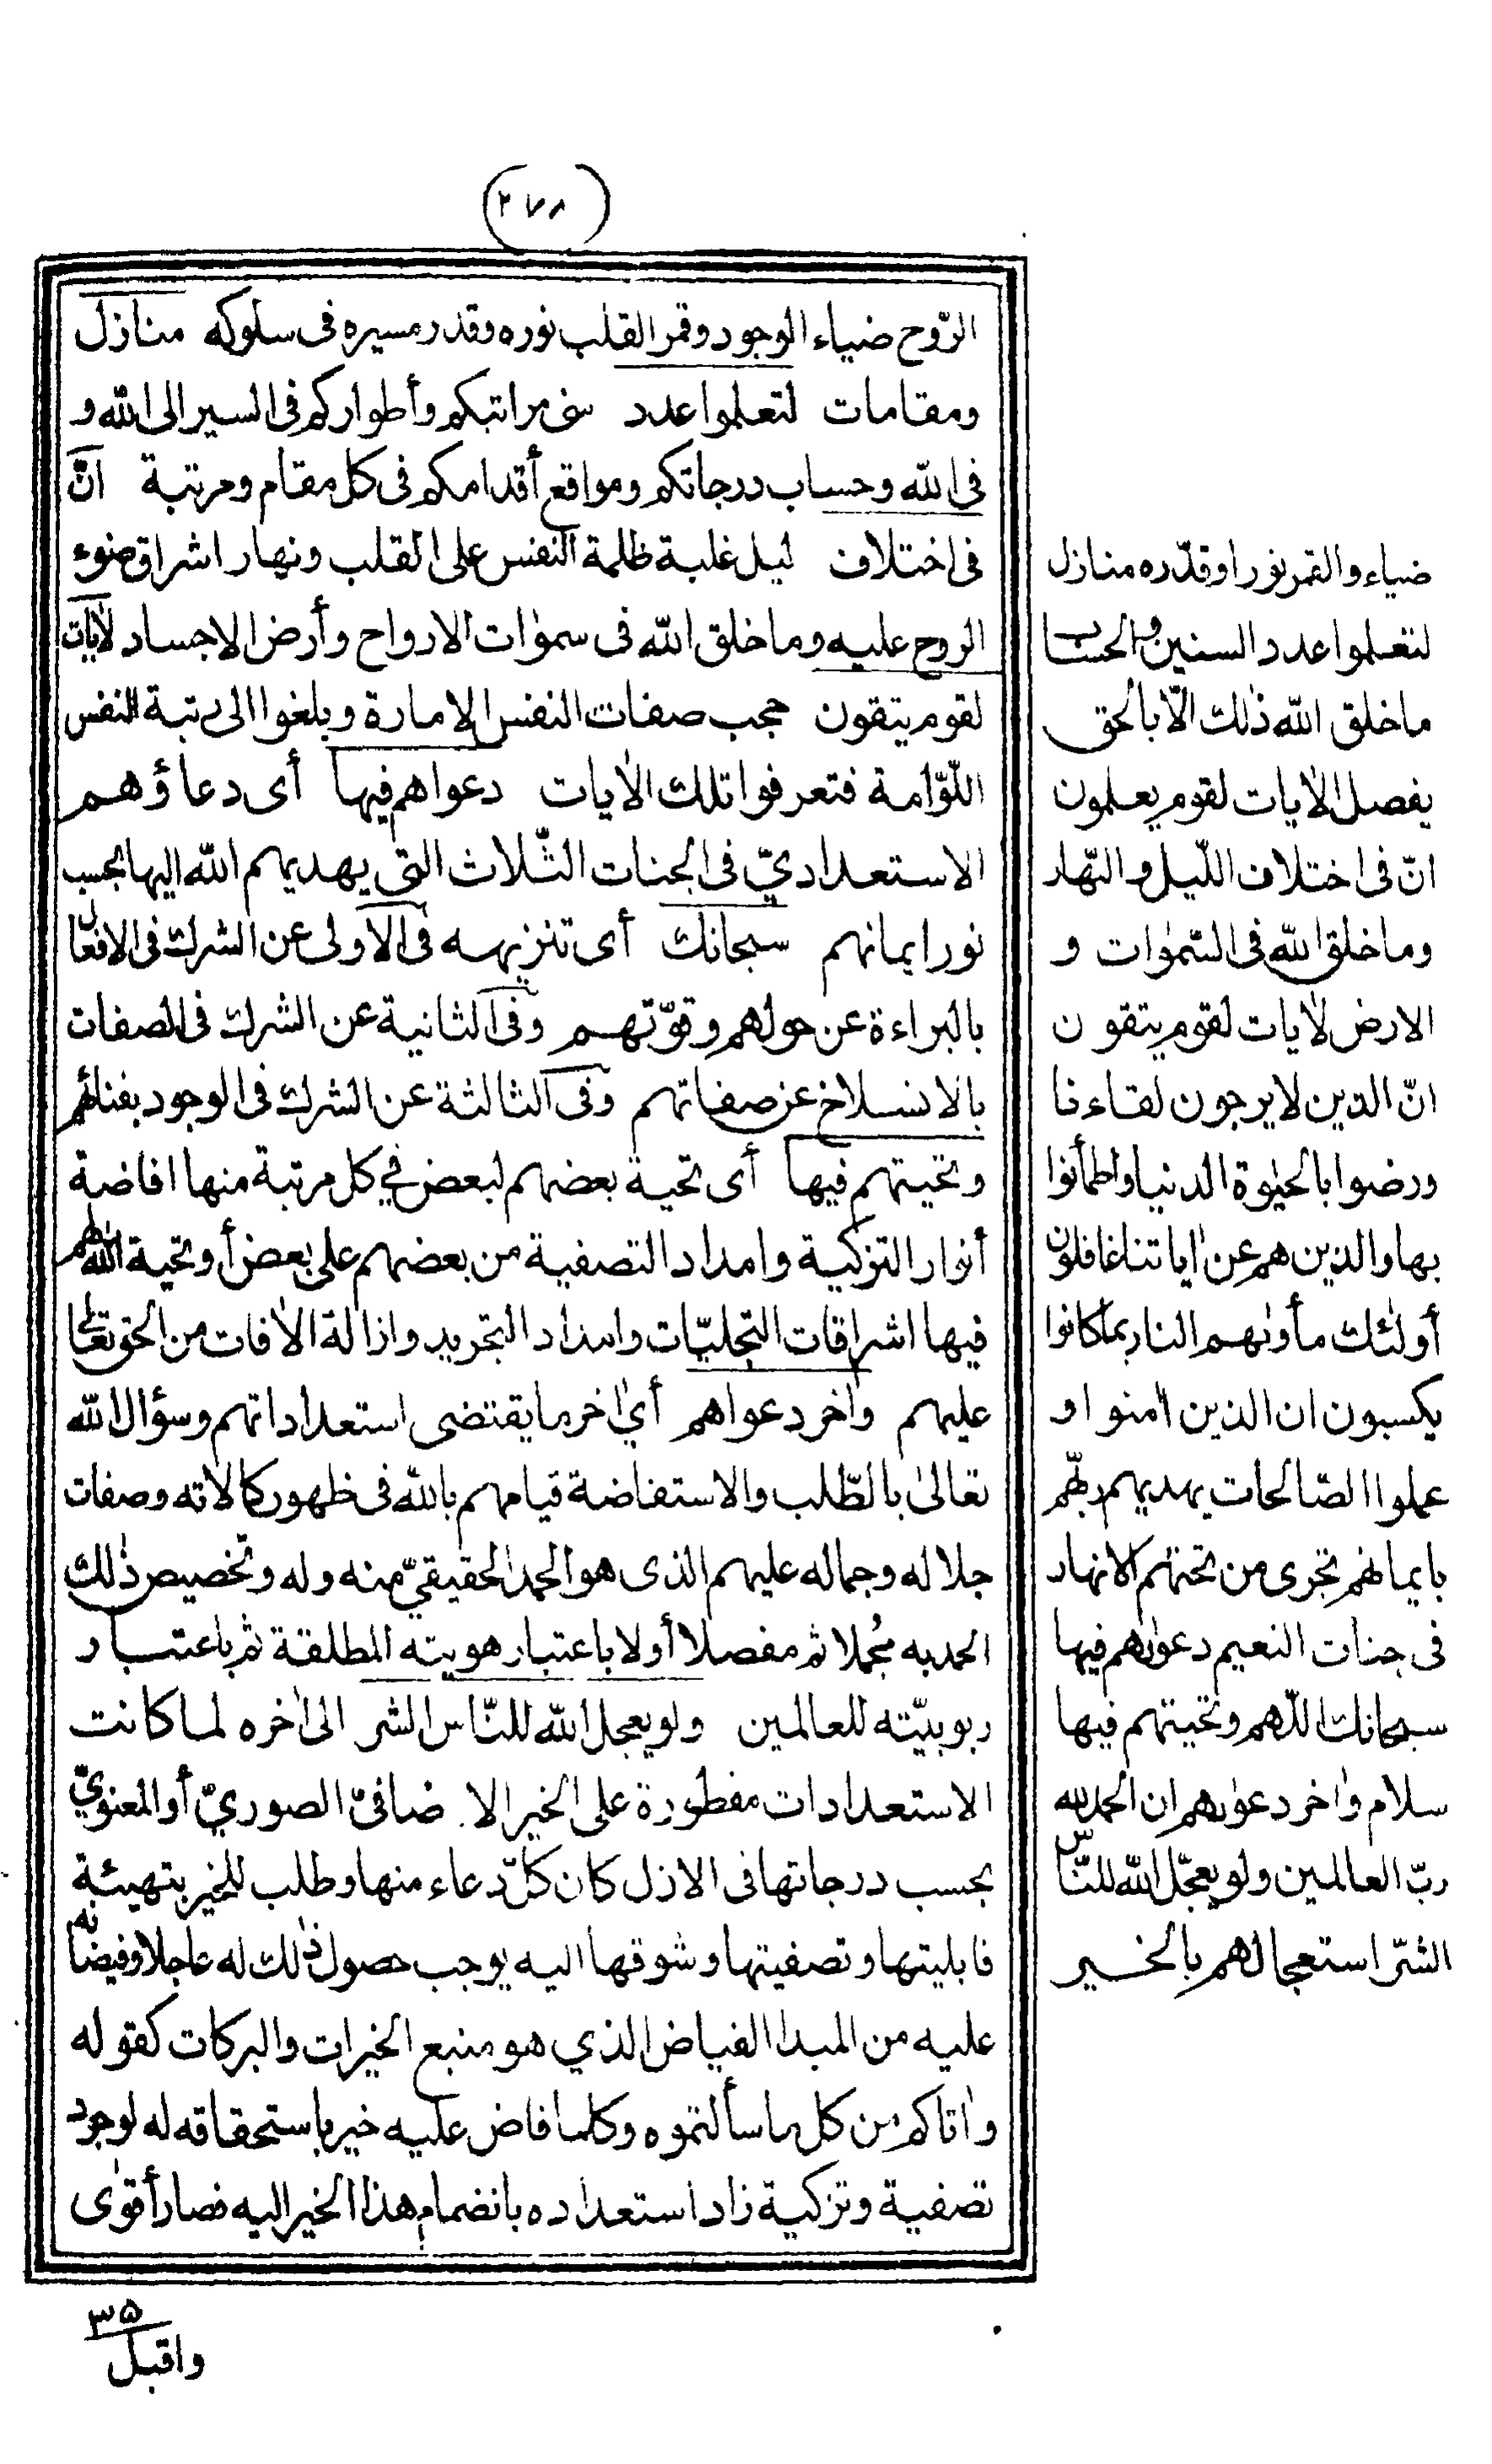 (٢٧٨)
الرّوح ضياء الوجود وقمر القلب نوره وقدر مسيره فى سلوكه منازل
ومقامات لتعلموا عدد سنى مراتبكم وأطواركم فى السير الى الله و
فى الله وحساب درجاتكم ومواقع أقدامكم فى كل مقام ومرتبة انّ
فى اختلاف ليل غلبة ظلمة النفس على القلب ونهار اشراق ضوء
الروح عليه وما خلق الله فى سموٰات الارواح وأرض الاجساد لاٰيات
لقوم يتقون حجب صفات النفس الامارة وبلغوا الى رتبة النفس
اللوّامة فتعرفوا تلك الاٰيات دعواهم فيها أى دعاؤهم
الاستعداديّ فى الجنات الثّلاث التى يهديهم الله اليها بحسب
نور ايمانهم سبحانك أى تنزيهه فى الأولى عن الشرك فى الافعال
بالبراءة عن حولهم وقوّتهم وفى الثانية عن الشرك فى الصفات
بالانسلاخ عن صفاتهم وفى الثالثة عن الشرك فى الوجود بفنائهم
وتحيتهم فيها أى تحية بعضهم لبعض في كل مرتبة منها افاضة
أنوار التزكية وامداد التصفية من بعضهم على بعض أو تحية الله لهم
فيها اشراقات التجليّات وامداد التجريد وازالة الاٰفات من الحق تعالى
عليهم واٰخر دعواهم أي اٰخر ما يقتضى استعداداتهم وسؤال الله
تعالىٰ بالطّلب والاستفاضة قيامهم بالله فى ظهور كمالاته وصفات
جلاله وجماله عليهم الذى هو الحمد الحقيقيّ منه وله وتخصيص ذٰلك
الحمد به مُجملا ثم مفصلا أولا باعتبار هويته المطلقة ثم باعتبار
ربوبيّته للعالمين ولو يعجل الله للنّاس الشر الى اٰخره لما كانت
الاستعدادات مفطورة على الخير الاضافىّ الصوريّ أو المعنويّ
بحسب درجاتها فى الازل كان كلّ دعاء منها وطلب للخير بتهيئة
قابليتها وتصفيتها وشوقها اليه يوجب حصول ذٰلك له عاجلا وفيضانه
عليه من المبدا الفياض الذي هو منبع الخيرات والبركات كقوله
واٰتاكم من كل ما سألتموه وكلما فاض عليه خير باستحقاقه له لوجود
تصفية وتزكية زاد استعداده بانضمام هذا الخير اليه فصار أقوٰى
ضياء والقمر نورا وقدّره منازل
لتعلموا عدد السنين والحساب
ما خلق الله ذٰلك الّا بالحق
يفصل الاٰيات لقوم يعلمون
انّ فى اختلاف اللّيل والنّهار
وما خلق الله فى السّمٰوات و
الارض لاٰيات لقوم يتقون
انّ الذين لا يرجون لقاءنا
ورضوا بالحيٰوة الدنيا واطمأنوا
بها والذين هم عن اٰياتنا غافلون
أولٰئك مأوٰيهم النار بما كانوا
يكسبون ان الذين اٰمنوا و
عملوا الصّالحات يهديهم ربّهم
بايمانهم تجرى من تحتهم الانهار
فى جنات النعيم دعوٰيهم فيها
سبحانك اللّهم وتحيتهم فيها
سلام واٰخر دعوٰيهم ان الحمد لله
ربّ العالمين ولو يعجّل الله للنّاس
الشرّ استعجالهم بالخير
٣٥
واقبل